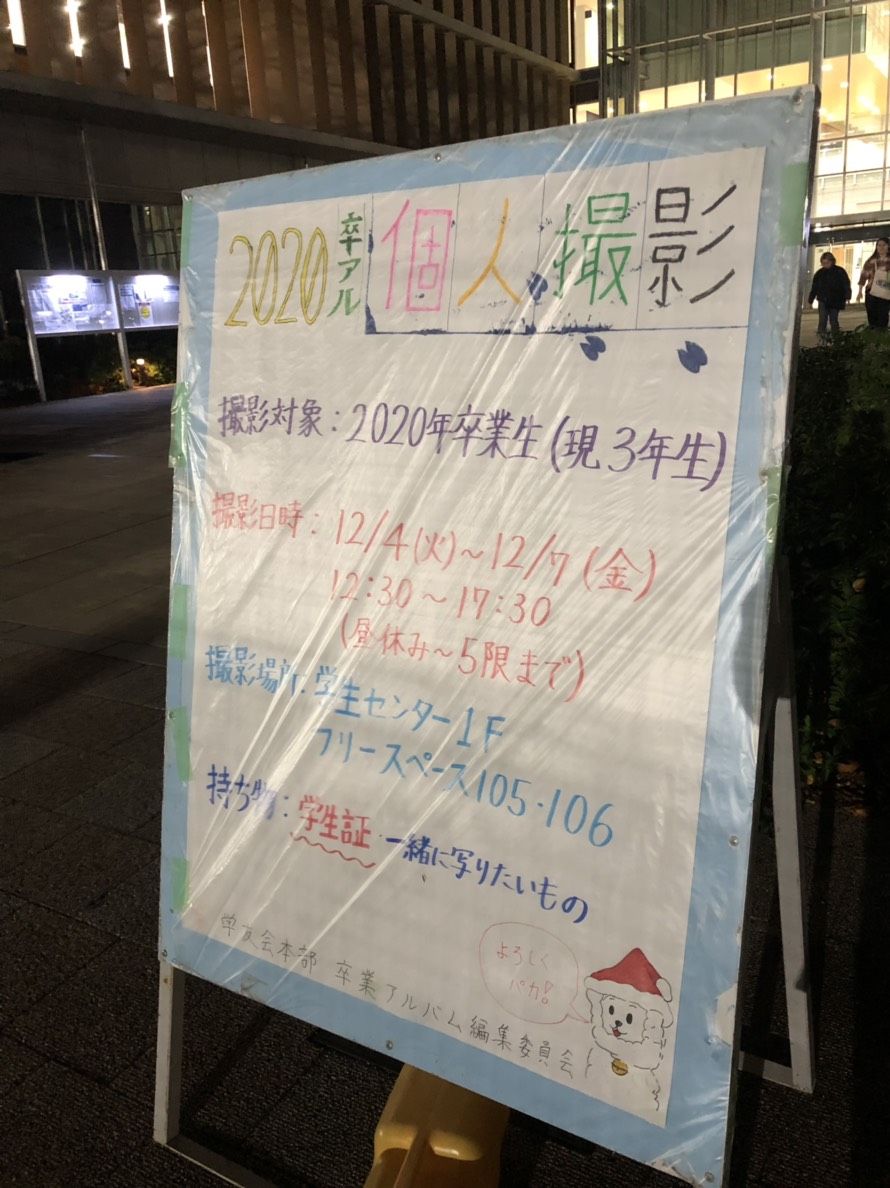 2020 卒アル 個人撮影
撮影対象：2020年卒業生(現3年生)
撮影日時：12/4(火)～12/7(金)
12:30～17:30
(昼休み～5限まで)
撮影場所：学生センター1F
フリースペース105・106
持ち物：学生証・一緒に写りたいもの
よろしく
パカ!
学友会本部 卒業アルバム編集委員会